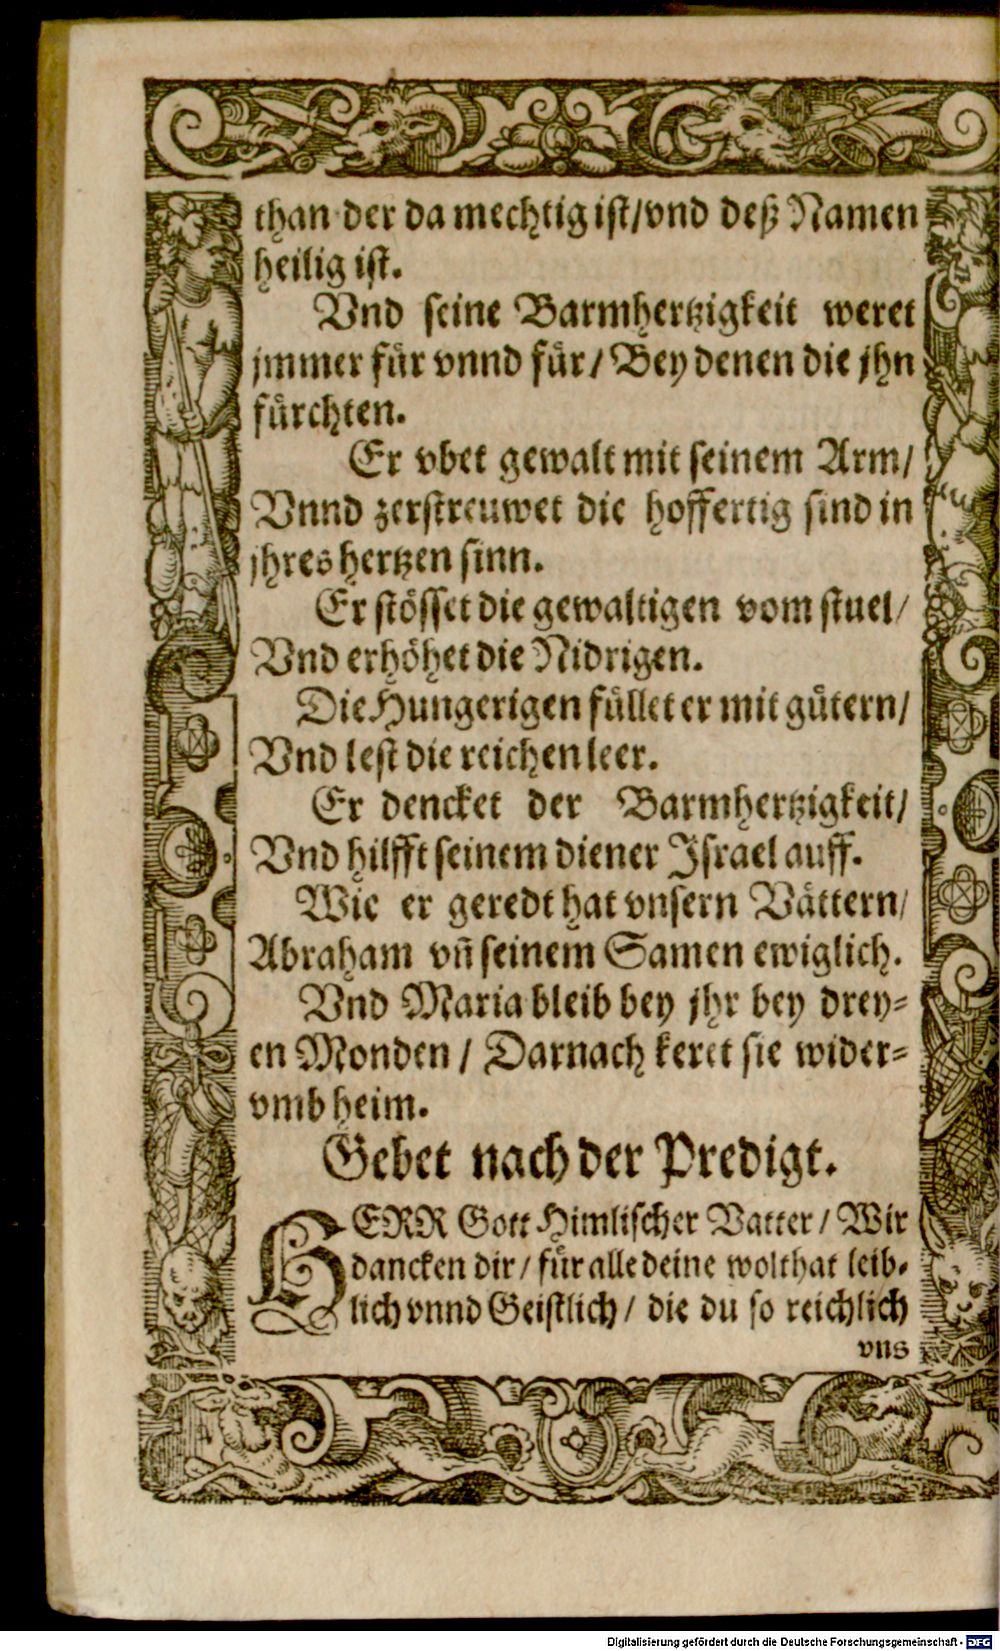 than der da mechtig ist/vnd deß Namen
heilig ist.
Vnd seine Barmhertzigkeit weret
jmmer fuͤr vnnd fuͤr/ Bey denen die jhn
fuͤrchten.
Er vbet gewalt mit seinem Arm/
Vnnd zerstreuwet die hoffertig sind in
jhres hertzen sinn.
Er stösset die gewaltigen vom stuel/
Vnd erhöhet die Nidrigen.
Die Hungerigen fuͤllet er mit guͤtern/
Vnd lest die reichen leer.
Er dencket der Barmhertzigkeit/
Vnd hilfft seinem diener Israel auff.
Wie er geredt hat vnsern Vättern/
Abraham vn̄ seinem Samen ewiglich.
Vnd Maria bleib bey jhr bey drey=
en Monden / Darnach keret sie wider=
vmb heim.
Gebet nach der Predigt.
HERR Gott Himlischer Vatter / Wir
dancken dir / fuͤr alle deine wolthat leib=
lich vnnd Geistlich / die du so reichlich
vns
Digitalisierung gefördert durch die Deutsche Forschungsgemeinschaft - DFG